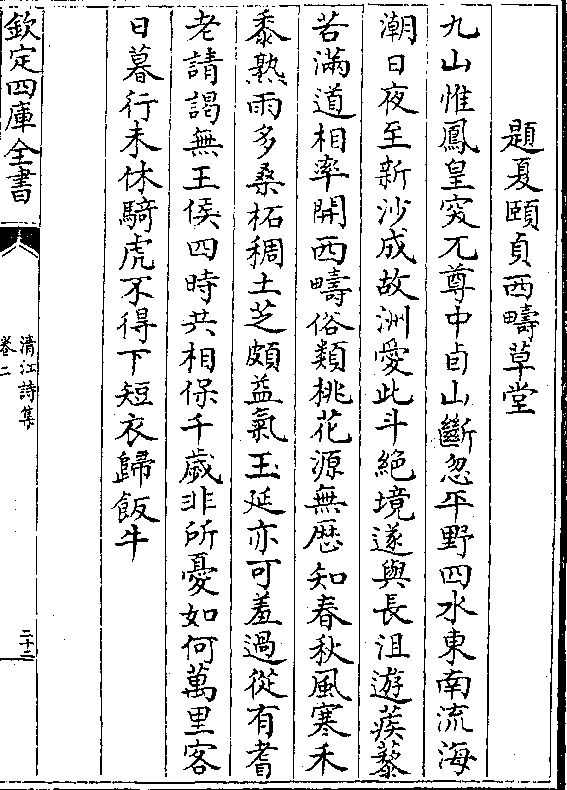 題夏頤貞西疇草堂
九山惟鳳皇突兀尊中卣山斷忽平野四水東南流海
潮日夜至新沙成故洲愛此斗絶境遂與長沮遊蒺藜
苦滿道相率開西疇俗類桃花源無厯知春秋風寒禾
黍熟雨多桑柘稠土芝頗益氣玉延亦可羞過從有耆
老請謁無王侯四時共相保千歲非所憂如何萬里客
日暮行未休騎虎不得下短衣歸飯牛
欽定四庫全書
清江詩集
卷二
二十二